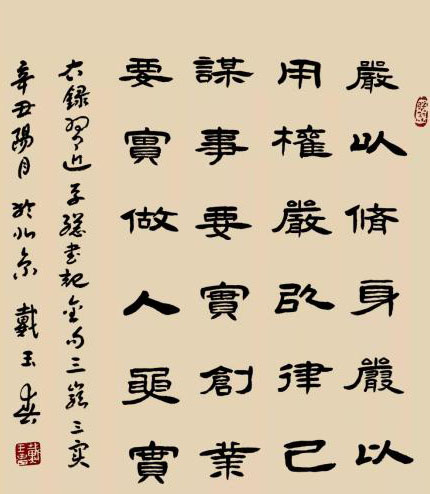 嚴以脩身嚴以
用權嚴以律己
謀事要實創業
要實做人要實
右錄習近平總書記金句三嚴三实
辛丑陽月於北京戴玉春